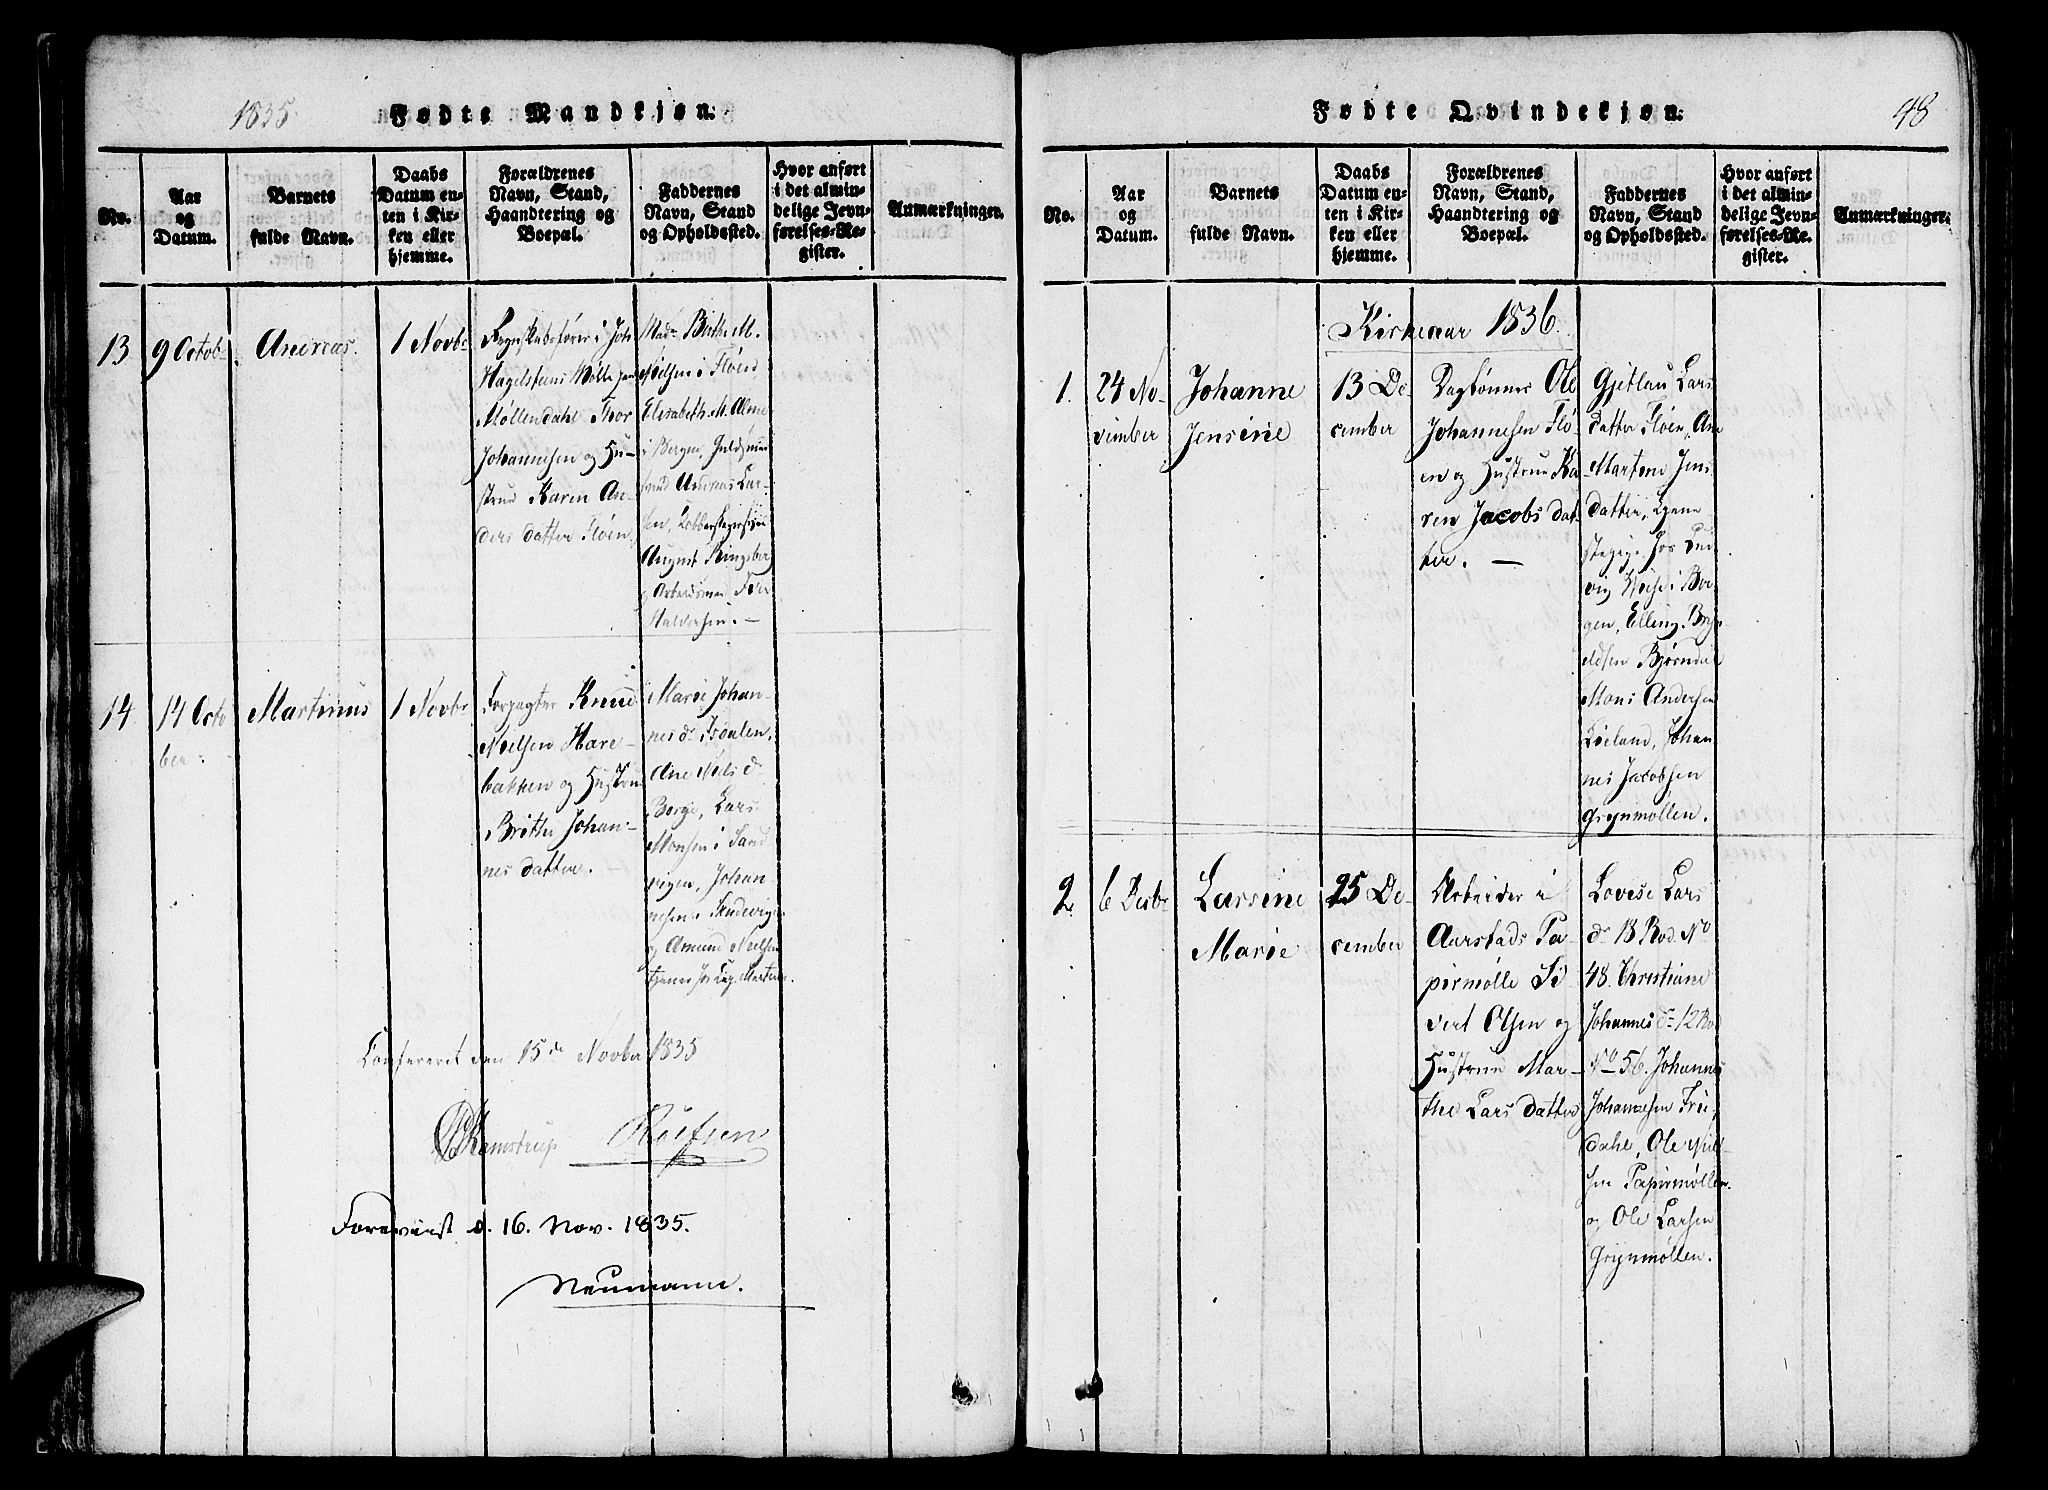 1835
Fødte Mandkjøn:
No.
Aar
og
Datum.
Barnets
fulde Navn.
Daabs
Datum en-
ten i Kir-
ken eller
hjemme.
Forældrenes
Navn, Stand,
Haandtering og
Boepæl.
Faddernes
Navn, Stand
og Opholdssted.
Hvor anført
i det almin-
delige Jevn-
førelses-Re-
gister.
Anmærkninger.
13
9 Octob.
Andreas.
1 Novbr
Regnskabsfører i Joh
Hagelsteens Mølle paa
Møllendahl Thor
Johannesen og Hu-
strue Karen An-
ders datter Fløen
Mad. Birthe M.
Nielsen i Fløen
Elisabeth M.
i Bergen, Guldsmed
svend Andreas Lar-
sen,
August Ringsber
og Arbeidsmand
Halversen. -
14
14 Octo
ber.
Martinus
1 Novbr
Forpagter Knud
Nielsen Hare-
bakken og Hustrue
Brithe Johan-
nes datter. -
Marie Johan-
nes d. Isdalen,
Ane Niels d.
Borge, Lars
Monsen i Sand-
vigen, Johan
Sandvigen
og Amund Nielsen
Confereret den 15de Novbr 1835
Kamstrup
Foreviist d. 16. Nov. 1835.
Neumann.
Fødte Qvindekjøn:
48
No.
Aar
og
Datum.
Barnets
fulde Navn.
Daabs
Datum en-
ten i Kir-
ken eller
hjemme.
Forældrenes
Navn, Stand,
Haandtering og
Boepæl.
Faddernes
Navn, Stand
og Opholdssted.
Hvor anført
i det almin-
delige Jevn-
førelses-Re-
gister.
Anmærkninger.
Kirkeaar 1836.
1.
24 No-
vember
Johanne
Jensine
13 De-
cember
Daglønner Ole
Johannesen Flø-
en og Hustrue Ka-
ren Jacobs dat-
ter. -
Gjertrud Lars
datter Fløen, Ane
Martine Jens
datter,
vig Weise i Ber-
gen, Elling Bryn-
ildsen Bjørndal
Mons Andersen
Løeland, Johan
nes Jacobsen
Grynmøllen.
2
6 Decbr
Larsine
Marie
25 De-
cember
Arbeider i
Aarstads Pa-
pirmølle Si
vert Olsen og
Hustrue Mar-
the Lars datter
Lovise Lars
dr 18 Rod. No
48. Christiane
Johannes dr 12 Rod
No 56. Johannes
Johannesen Frie-
dahl, Ole Niel-
sen Papirmøllen
og Ole Larsen
Grynmøllen.